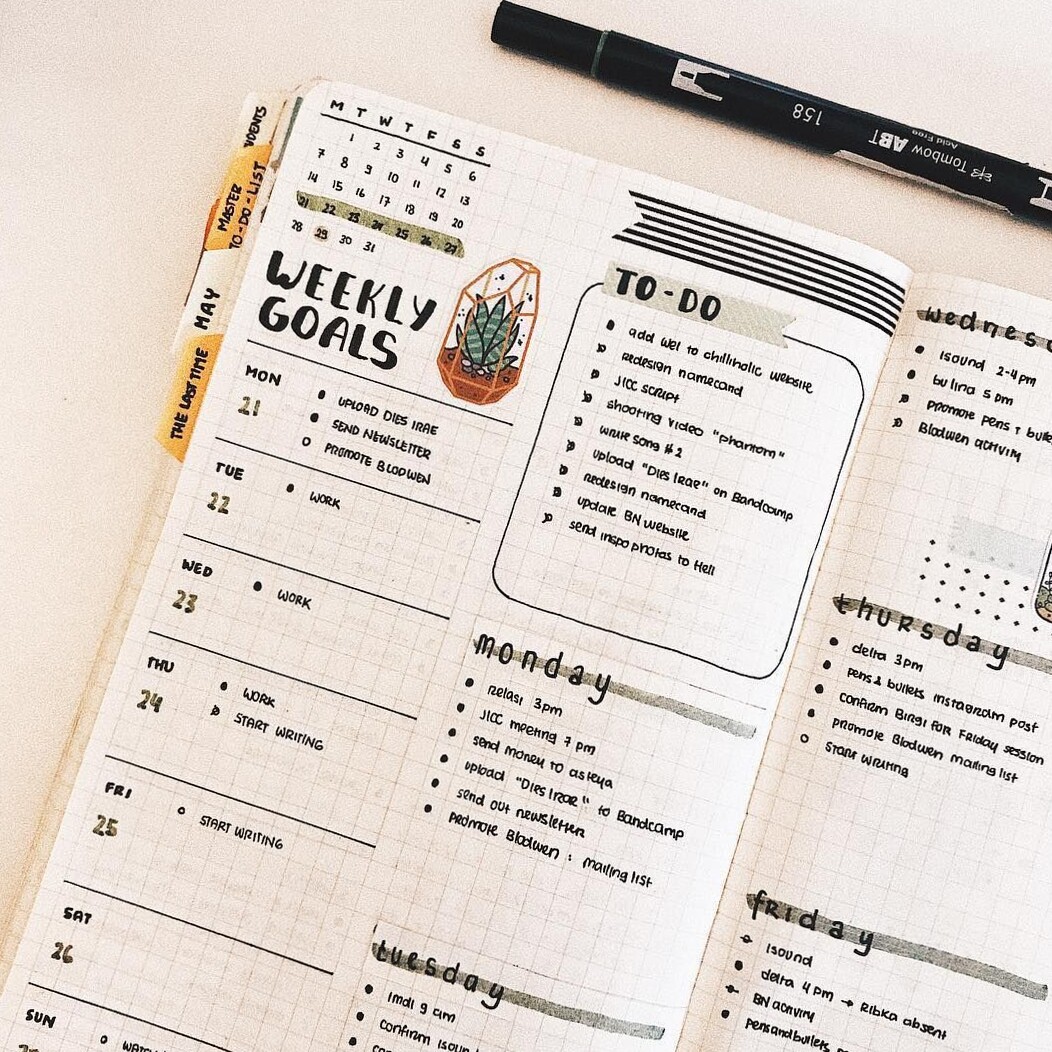 RESIDENTS
MASTER
TO-DO-LIST
MAY
THE LAST TIME
M T W T F S S
1 2 3 4 5 6
7 8 9 10 11 12 13
14 15 16 17 18 19 20
21 22 23 24 25 26 27
28 29 30 31
WEEKLY
GOALS
MON
21
UPLOAD DIES IRAE
SEND NEWSLETTER
PROMOTE BLODWEN
TUE
22
WORK
WED
23
WORK
THU
24
WORK
START WRITING
FRI
25
START WRITING
SAT
26
SUN
TO-DO
add wei to chillholic website
redesign namecard
JICC script
shooting video "phantom"
write song #2
upload "Dies Irae" on Bandcamp
redesign namecard
update BN website
send inspo photos to Hell
monday
relasi 3pm
JICC meeting 7 pm
send money to asteya
upload "Dies Irae" to Bandcamp
send out newsletter
promote Blodwen : mailing list
tuesday
1mdl 9 am
confirm
wednes
1sound 2-4pm
bulina 5pm
promote pens &
Blodwen activity
thursday
delta 3pm
pens & bullets instagram post
confirm Birgi for Friday session
promote Blodwen mailing list
start writing
friday
1sound
delta 4pm → Ribka absent
BN activity
pensandbullets
158
Tombow ABT
Acid Free